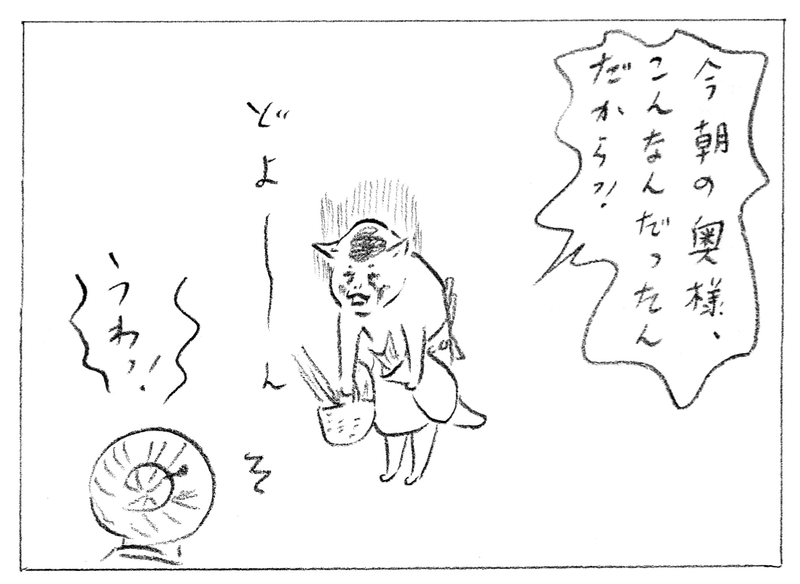 今朝の奥様、
こんなんだったん
だからっ!
どよーん
うわっ!